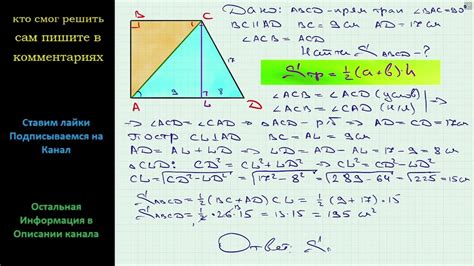 кто смог решить
сам пишите в
комментариях
Ставим лайки
Подписываемся на
Канал
Остальная
Информация в
Описании канала
B
C
17
A
9
L
8
D
Дано: ABCD-прям трап ∠BAC=90°
BC∥AD BC=9см AD=17см
∠ACB=∠ACD
Найти S ABCD-?
Sтр=½(a+b)·h
∠ACB=∠ACD (услов)
∠ACB=∠CAD (н/л)
⇒ ∠ACD=∠CAD ⇒ △ACD-р/б ⇒ AD=CD=17см
Постр CL⊥AD BC=AL=9см
AD=AL+LD ⇒ LD=AD-AL=17-9=8см
△CLD: CD²=CL²+LD² ⇒ CL²=CD²-LD²
CL=√CD²-LD²=√17²-8²=√289-64=√225=15см
S ABCD=½(BC+AD)CL=½(9+17)·15
S ABCD=½·26·15=13·15=195 см²
Ответ: S